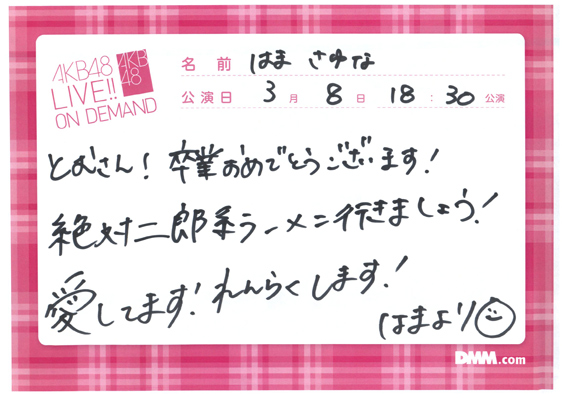 AKB48
LIVE!!
ON DEMAND
AKB
48
名前 はま さゆな
公演日 3月 8日 18:30 公演
とむさん! 卒業おめでとうございます!
絶対二郎系ラーメン行きましょう!
愛してます! れんらくします!
はまより
DMM.com